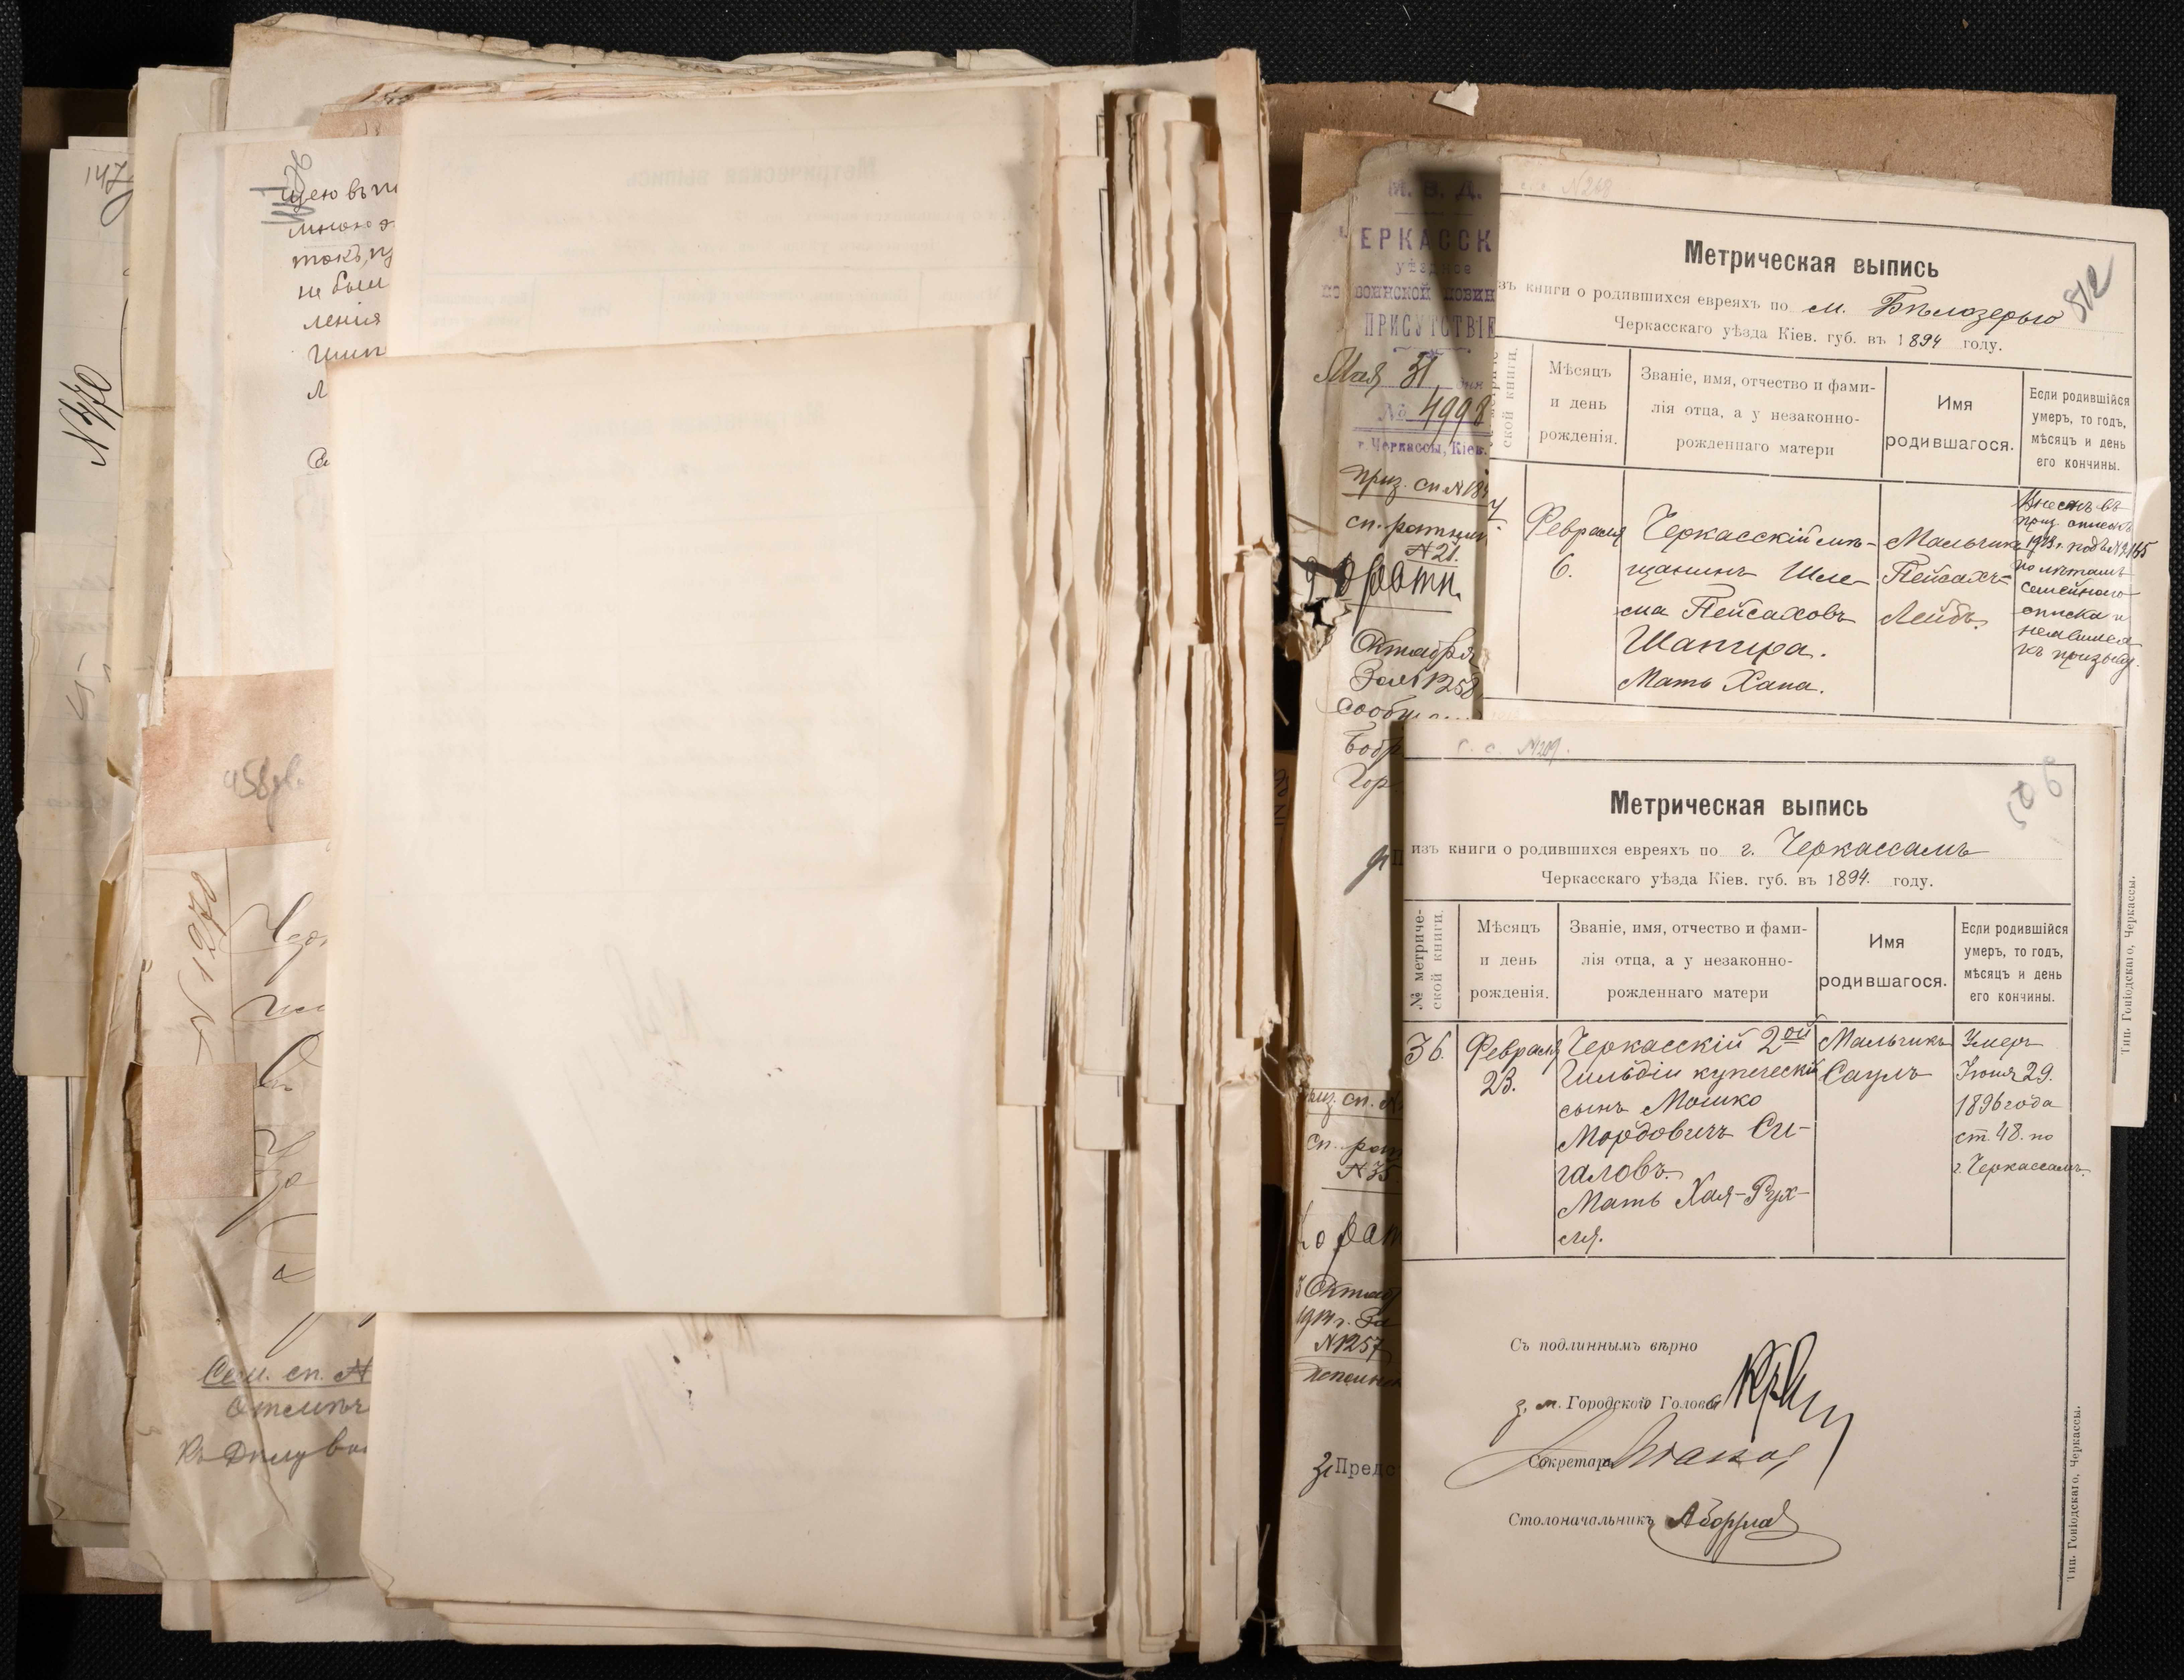 147
N 370
щею въ
мною
токъ,
не были
ленія
N 1270
Сем. сп. N
М. В. Д.
ЕРКАССК
уѣздное
по воинской повин
ПРИСУТСТВІЕ
Мая 31 дня
№ 4998
г. Черкассы, Кіев.
приз. сп N 184
сп. ратник
N 21.
Октября
За N 1258
Сообщ
приз. сп. N
сп. рат
N 35
Октяб
1914 г. За
N 1257
Предс
N 268
512
Метрическая выпись
зъ книги о родившихся евреяхъ по м. Бѣлозерью
Черкасскаго уѣзда Кіев. губ. въ 1894 году.
метриче
ской книги.
Мѣсяцъ
и день
рожденія.
Званіе, имя, отчество и фами-
лія отца, а у незаконно-
рожденнаго матери
Имя
родившагося.
Если родившійся
умеръ, то годъ,
мѣсяцъ и день
его кончины.
Февраля
6.
Черкасскій мѣ-
щанинъ Шле-
ма Пейсаховъ
Шапира.
Мать Хана.
Мальчикъ
Пейсахъ-
Лейбъ.
Внесенъ въ
приз. списокъ
1915 г. подъ N 2165
по лѣтамъ
семейного
списка и
неявился
къ призыву.
Тип. Гоніодскаго, Черкассы.
с. с. N 209.
506
Метрическая выпись
изъ книги о родившихся евреяхъ по г. Черкассамъ
Черкасскаго уѣзда Кіев. губ. въ 1894. году.
№ метриче-
ской книги.
Мѣсяцъ
и день
рожденія.
Званіе, имя, отчество и фами-
лія отца, а у незаконно-
рожденнаго матери
Имя
родившагося.
Если родившійся
умеръ, то годъ,
мѣсяцъ и день
его кончины.
36.
Февраля
23.
Черкасскій 2ой
Гильдіи купеческій
сынъ Мошко
Мордовичъ Си-
галовъ.
Мать Хая-Рух-
ля.
Мальчикъ
Саулъ
Умеръ
Іюня 29.
1896 года
ст. 48. по
г. Черкассамъ.
Съ подлиннымъ вѣрно
з. м. Городского Головы
Секретарь
Столоначальникъ
Тип. Гоніодскаго, Черкассы.